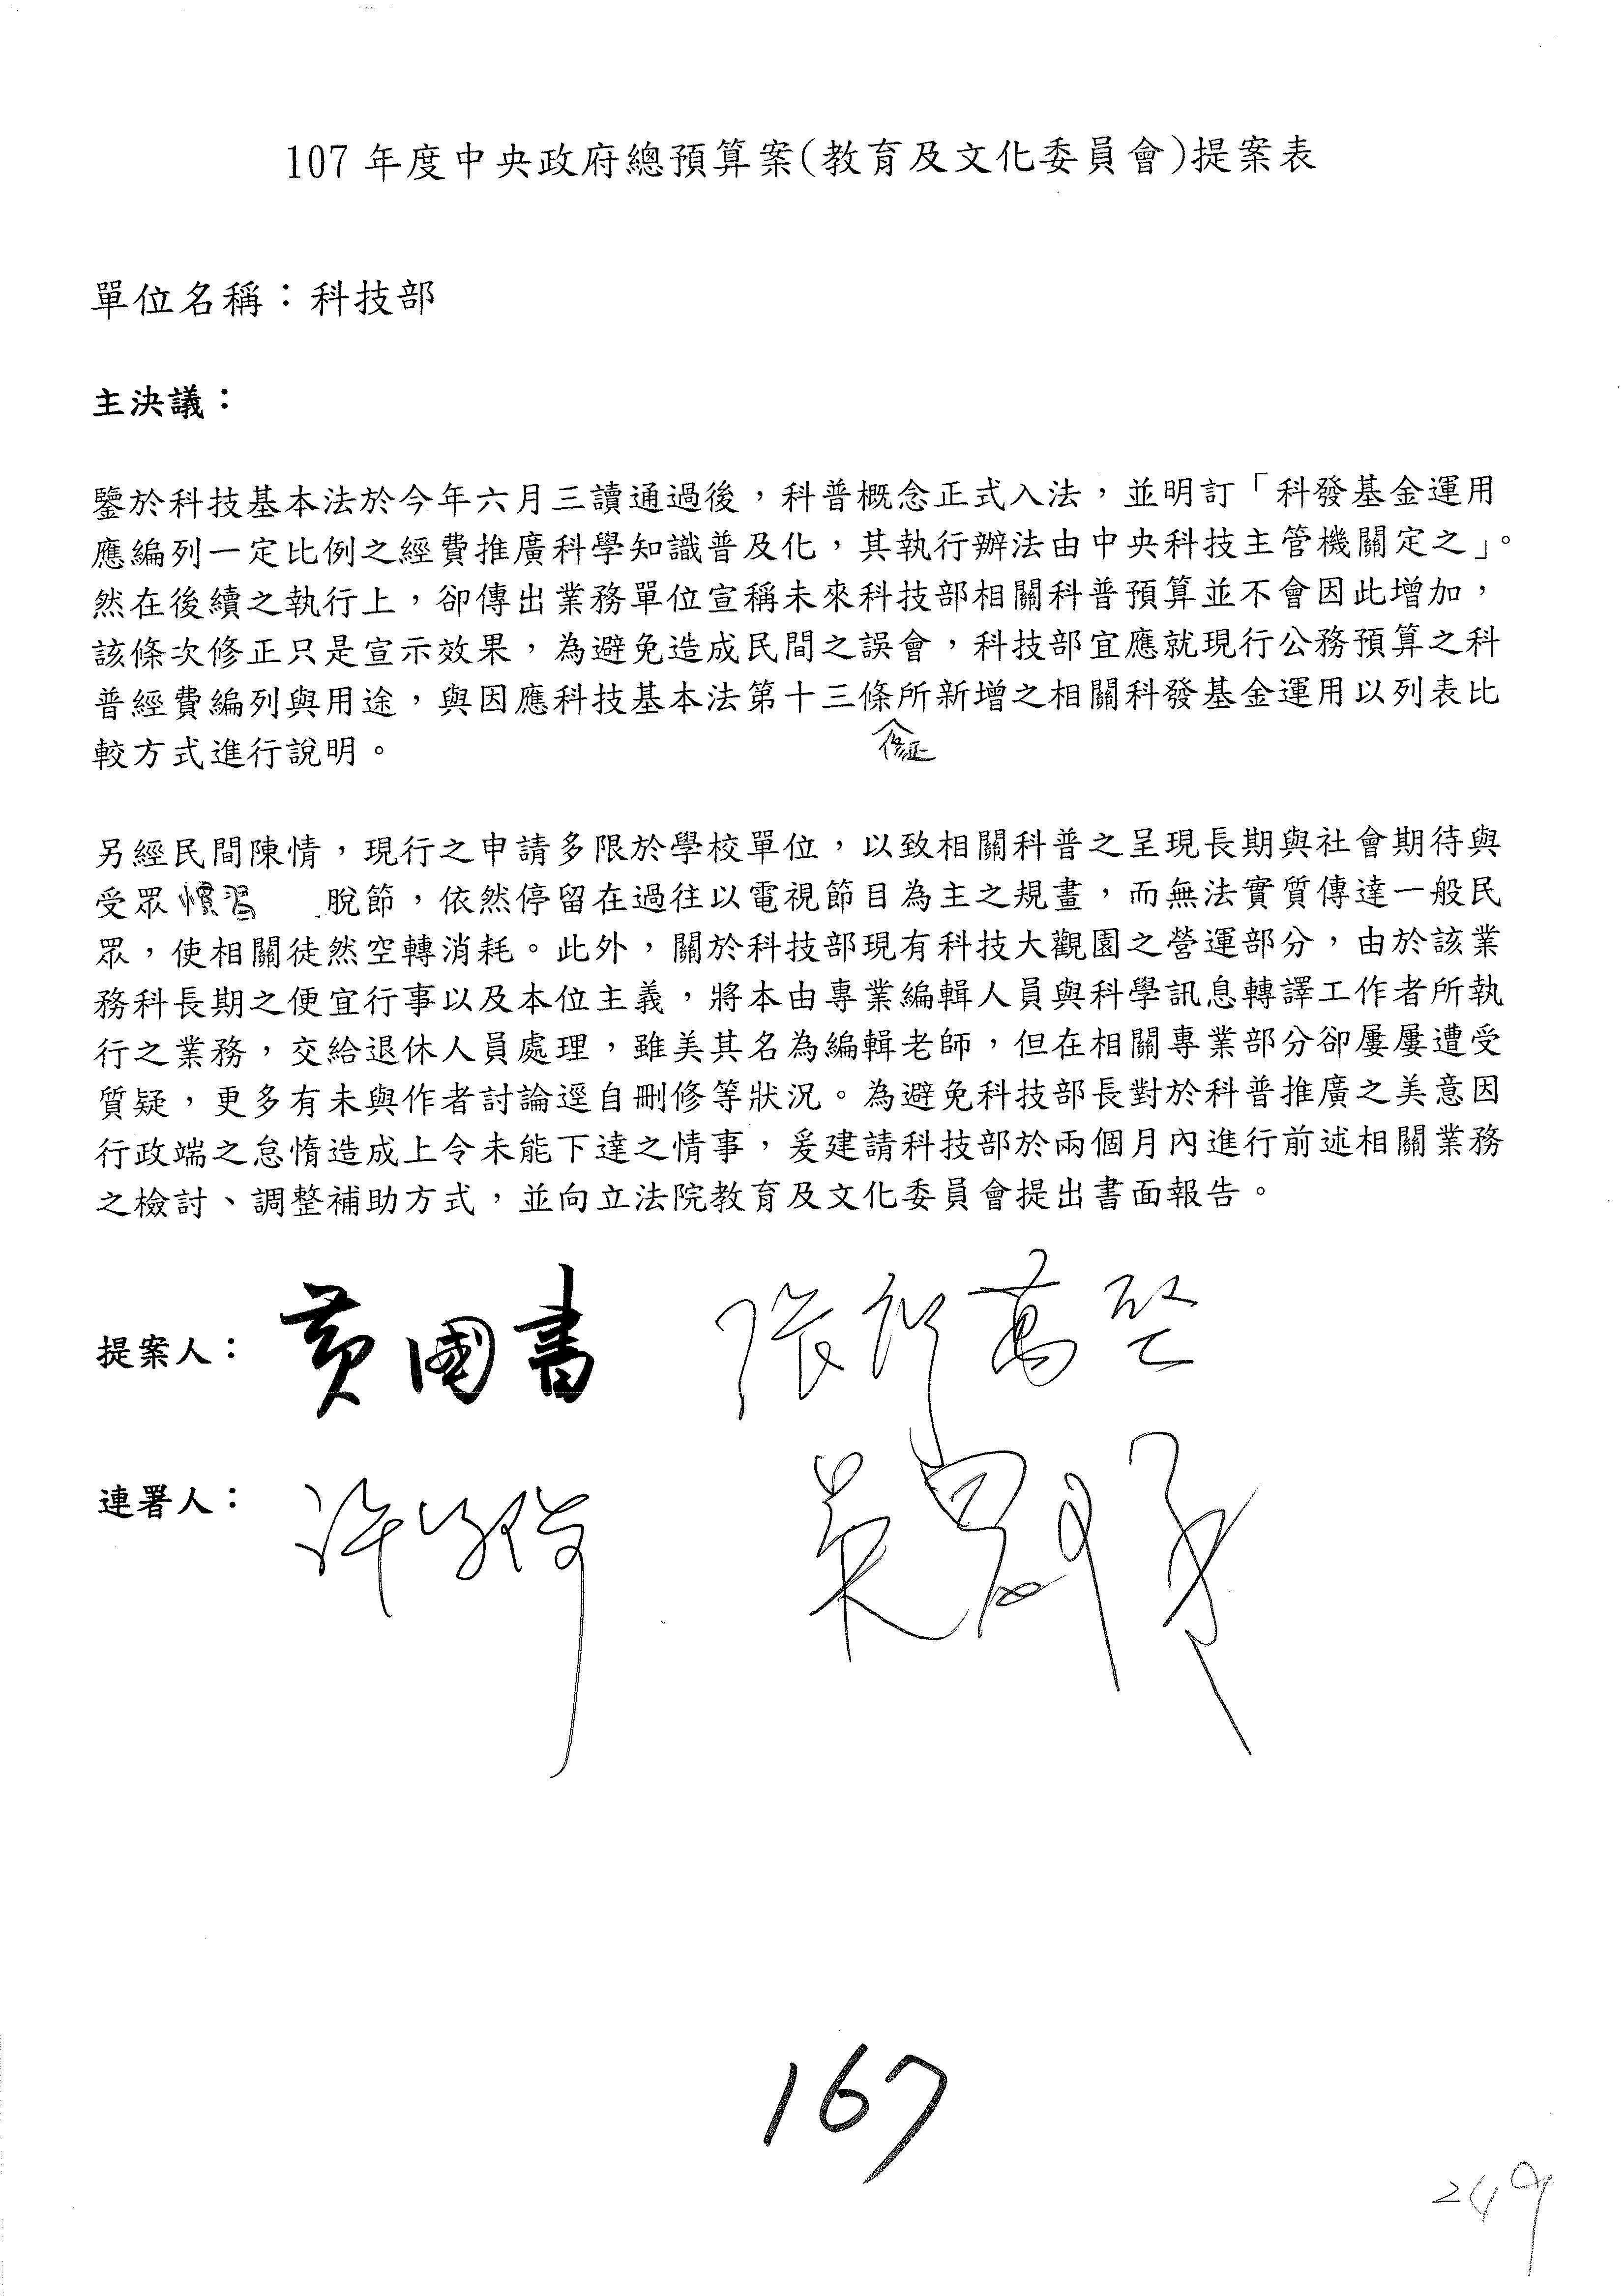 107 年度中央政府總預算案(教育及文化委員會)提案表
單位名稱：科技部
主決議：
鑒於科技基本法於今年六月三讀通過後，科普概念正式入法，並明訂「科發基金運用
應編列一定比例之經費推廣科學知識普及化，其執行辦法由中央科技主管機關定之」。
然在後續之執行上，卻傳出業務單位宣稱未來科技部相關科普預算並不會因此增加，
該條次修正只是宣示效果，為避免造成民間之誤會，科技部宜應就現行公務預算之科
普經費編列與用途，與因應科技基本法第十三條所新增之相關科發基金運用以列表比
修正
較方式進行說明。
另經民間陳情，現行之申請多限於學校單位，以致相關科普之呈現長期與社會期待與
受眾慣習 脫節，依然停留在過往以電視節目為主之規畫，而無法實質傳達一般民
眾，使相關徒然空轉消耗。此外，關於科技部現有科技大觀園之營運部分，由於該業
務科長期之便宜行事以及本位主義，將本由專業編輯人員與科學訊息轉譯工作者所執
行之業務，交給退休人員處理，雖美其名為編輯老師，但在相關專業部分卻屢屢遭受
質疑，更多有未與作者討論逕自刪修等狀況。為避免科技部長對於科普推廣之美意因
行政端之怠惰造成上令未能下達之情事，爰建請科技部於兩個月內進行前述相關業務
之檢討、調整補助方式，並向立法院教育及文化委員會提出書面報告。
提案人： 黃國書 張廖萬堅
連署人： 許智傑 吳思瑤
167
249